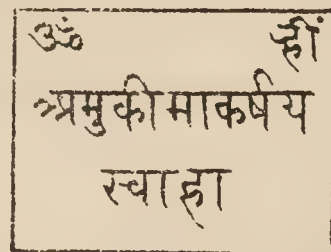 ॐ ह्रीं
अमुकीमाकर्षय
स्वाहा